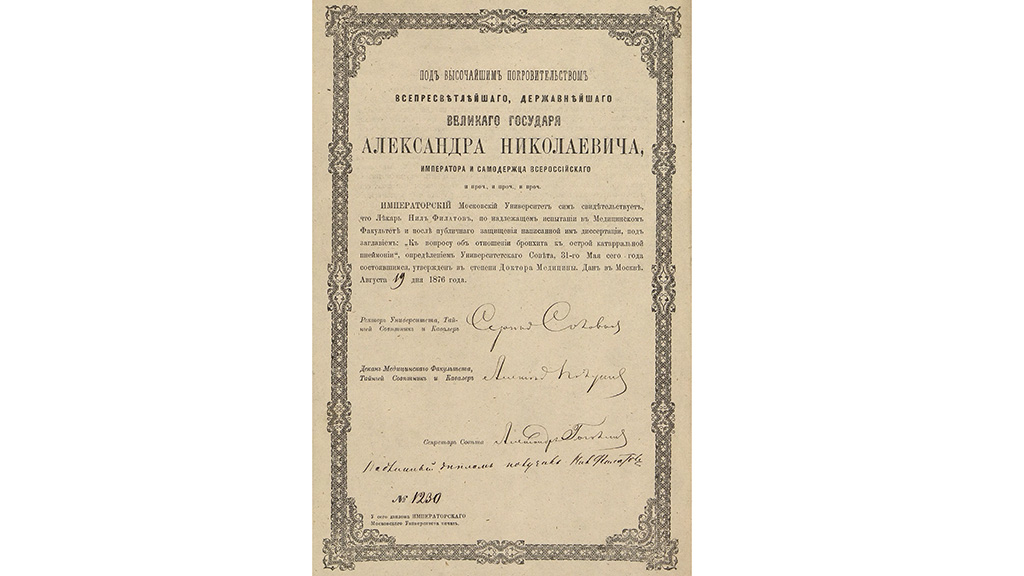 ПОДЪ ВЫСОЧАЙШИМЪ ПОКРОВИТЕЛЬСТВОМЪ
ВСЕПРЕСВѢТЛѢЙШАГО, ДЕРЖАВНѢЙШАГО
ВЕЛИКАГО ГОСУДАРЯ
АЛЕКСАНДРА НИКОЛАЕВИЧА,
ИМПЕРАТОРА И САМОДЕРЖЦА ВСЕРОССІЙСКАГО
и проч., и проч., и проч.
ИМПЕРАТОРСКІЙ Московскій Университет сим свидѣтельствует,
что Лѣкарь Нилъ Филатовъ, по надлежащем испытаніи въ Медицинском
Факультетѣ и послѣ публичнаго защищенія написанной им диссертаціи, под
заглавіем: „Къ вопросу об отношеніи бронхита къ острой катарральной
пнеймоніи“, опредѣленіем Университетскаго Совѣта, 31-го Мая сего года
состоявшимся, утвержден въ степени Доктора Медицины. Дан въ Москвѣ,
Августа 19 дня 1876 года.
Ректор Университета, Тай-
ный Совѣтник и Кавалер Сергѣй
Декан Медицинскаго Факультета,
Тайный Совѣтник и Кавалер
Секретарь Совѣта Александръ
Подлинный дипломъ получилъ Нил Филатовъ
№ 1230
У сего диплома ИМПЕРАТОРСКАГО
Московскаго Университета печать.